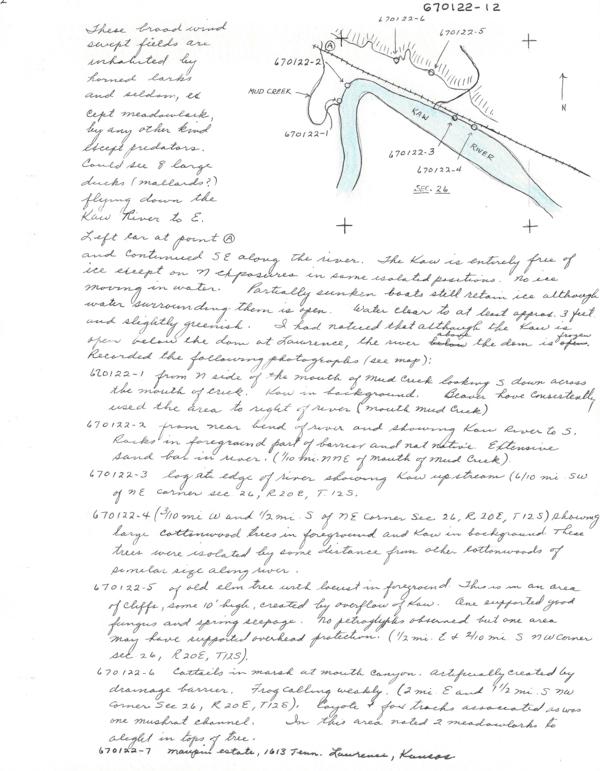 670122-12
These broad wind
swept fields are
inhabited by
horned larks
and seldom, ex
cept meadowlark,
by any other kind
except predators.
Could see 8 large
ducks (mallards?)
flying down the
Kaw River to E.
670122-6
670122-5
A
670122-2
MUD CREEK
670122-1
KAW
RIVER
670122-3
670122-4
SEC. 26
N
Left car at point A
and continued SE along the river. The Kaw is entirely free of
ice except on N exposures in some isolated positions. No ice
moving in water. Partially sunken boats still retain ice although
water surrounding them is open. Water clear to at least approx. 3 feet
and slightly greenish. I had noticed that although the Kaw is
open below the dam at Lawrence, the river above the dam is frozen.
Recorded the following photographs (see map):
670122-1 from N side of the mouth of Mud Creek looking S down across
the mouth of creek. Kaw in background. Beaver have consistently
used the area to right of river (mouth Mud Creek)
670122-2 from near bend of river and showing Kaw River to S.
Rocks in foreground part of barrier and not native. Extensive
sand bar in river. (1/10 mi. NNE of mouth of Mud Creek)
670122-3 log at edge of river showing Kaw upstream (6/10 mi. SW
of NE corner sec 26, R20E, T.12S.
670122-4 (3/10 mi W and 1/2 mi. S of NE Corner Sec. 26, R.20E, T12S) showing
large cottonwood trees in foreground and Kaw in background These
trees were isolated by some distance from other cottonwoods of
similar size along river.
670122-5 of old elm tree with locust in foreground This is in an area
of cliffs, some 10' high, created by overflow of Kaw. One supported good
fungus and spring seepage. No petroglyphs observed but one area
may have supported overhead protection. (1/2 mi. E & 2/10 mi. S NW Corner
sec. 26, R20E, T12S).
670122-6 Cattails in marsh at mouth canyon. Artificially created by
drainage barrier. Frog calling weakly. (2 mi. E and 1/2 mi. S NW
Corner Sec 26, R20E, T12S). Coyote & fox tracks associated as was
one muskrat channel. In this area noted 2 meadowlarks to
alight in tops of tree.
670122-7 Maupin estate, 1613 Tenn. Lawrence, Kansas